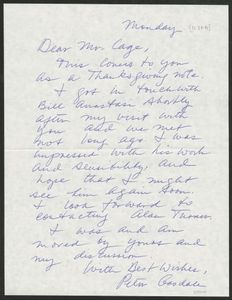 Monday
Dear Mr. Cage,
This comes to you
as a Thanksgiving note.
I got in touch with
Bill Anastasi shortly
after my visit with
you and we met
not long ago. I was
impressed with his work
and sensibility, and
hope that I might
see him again soon.
I look forward to
contacting Alan Thomas.
I was and am
moved by yours and
my discussion.
With Best Wishes,
Peter